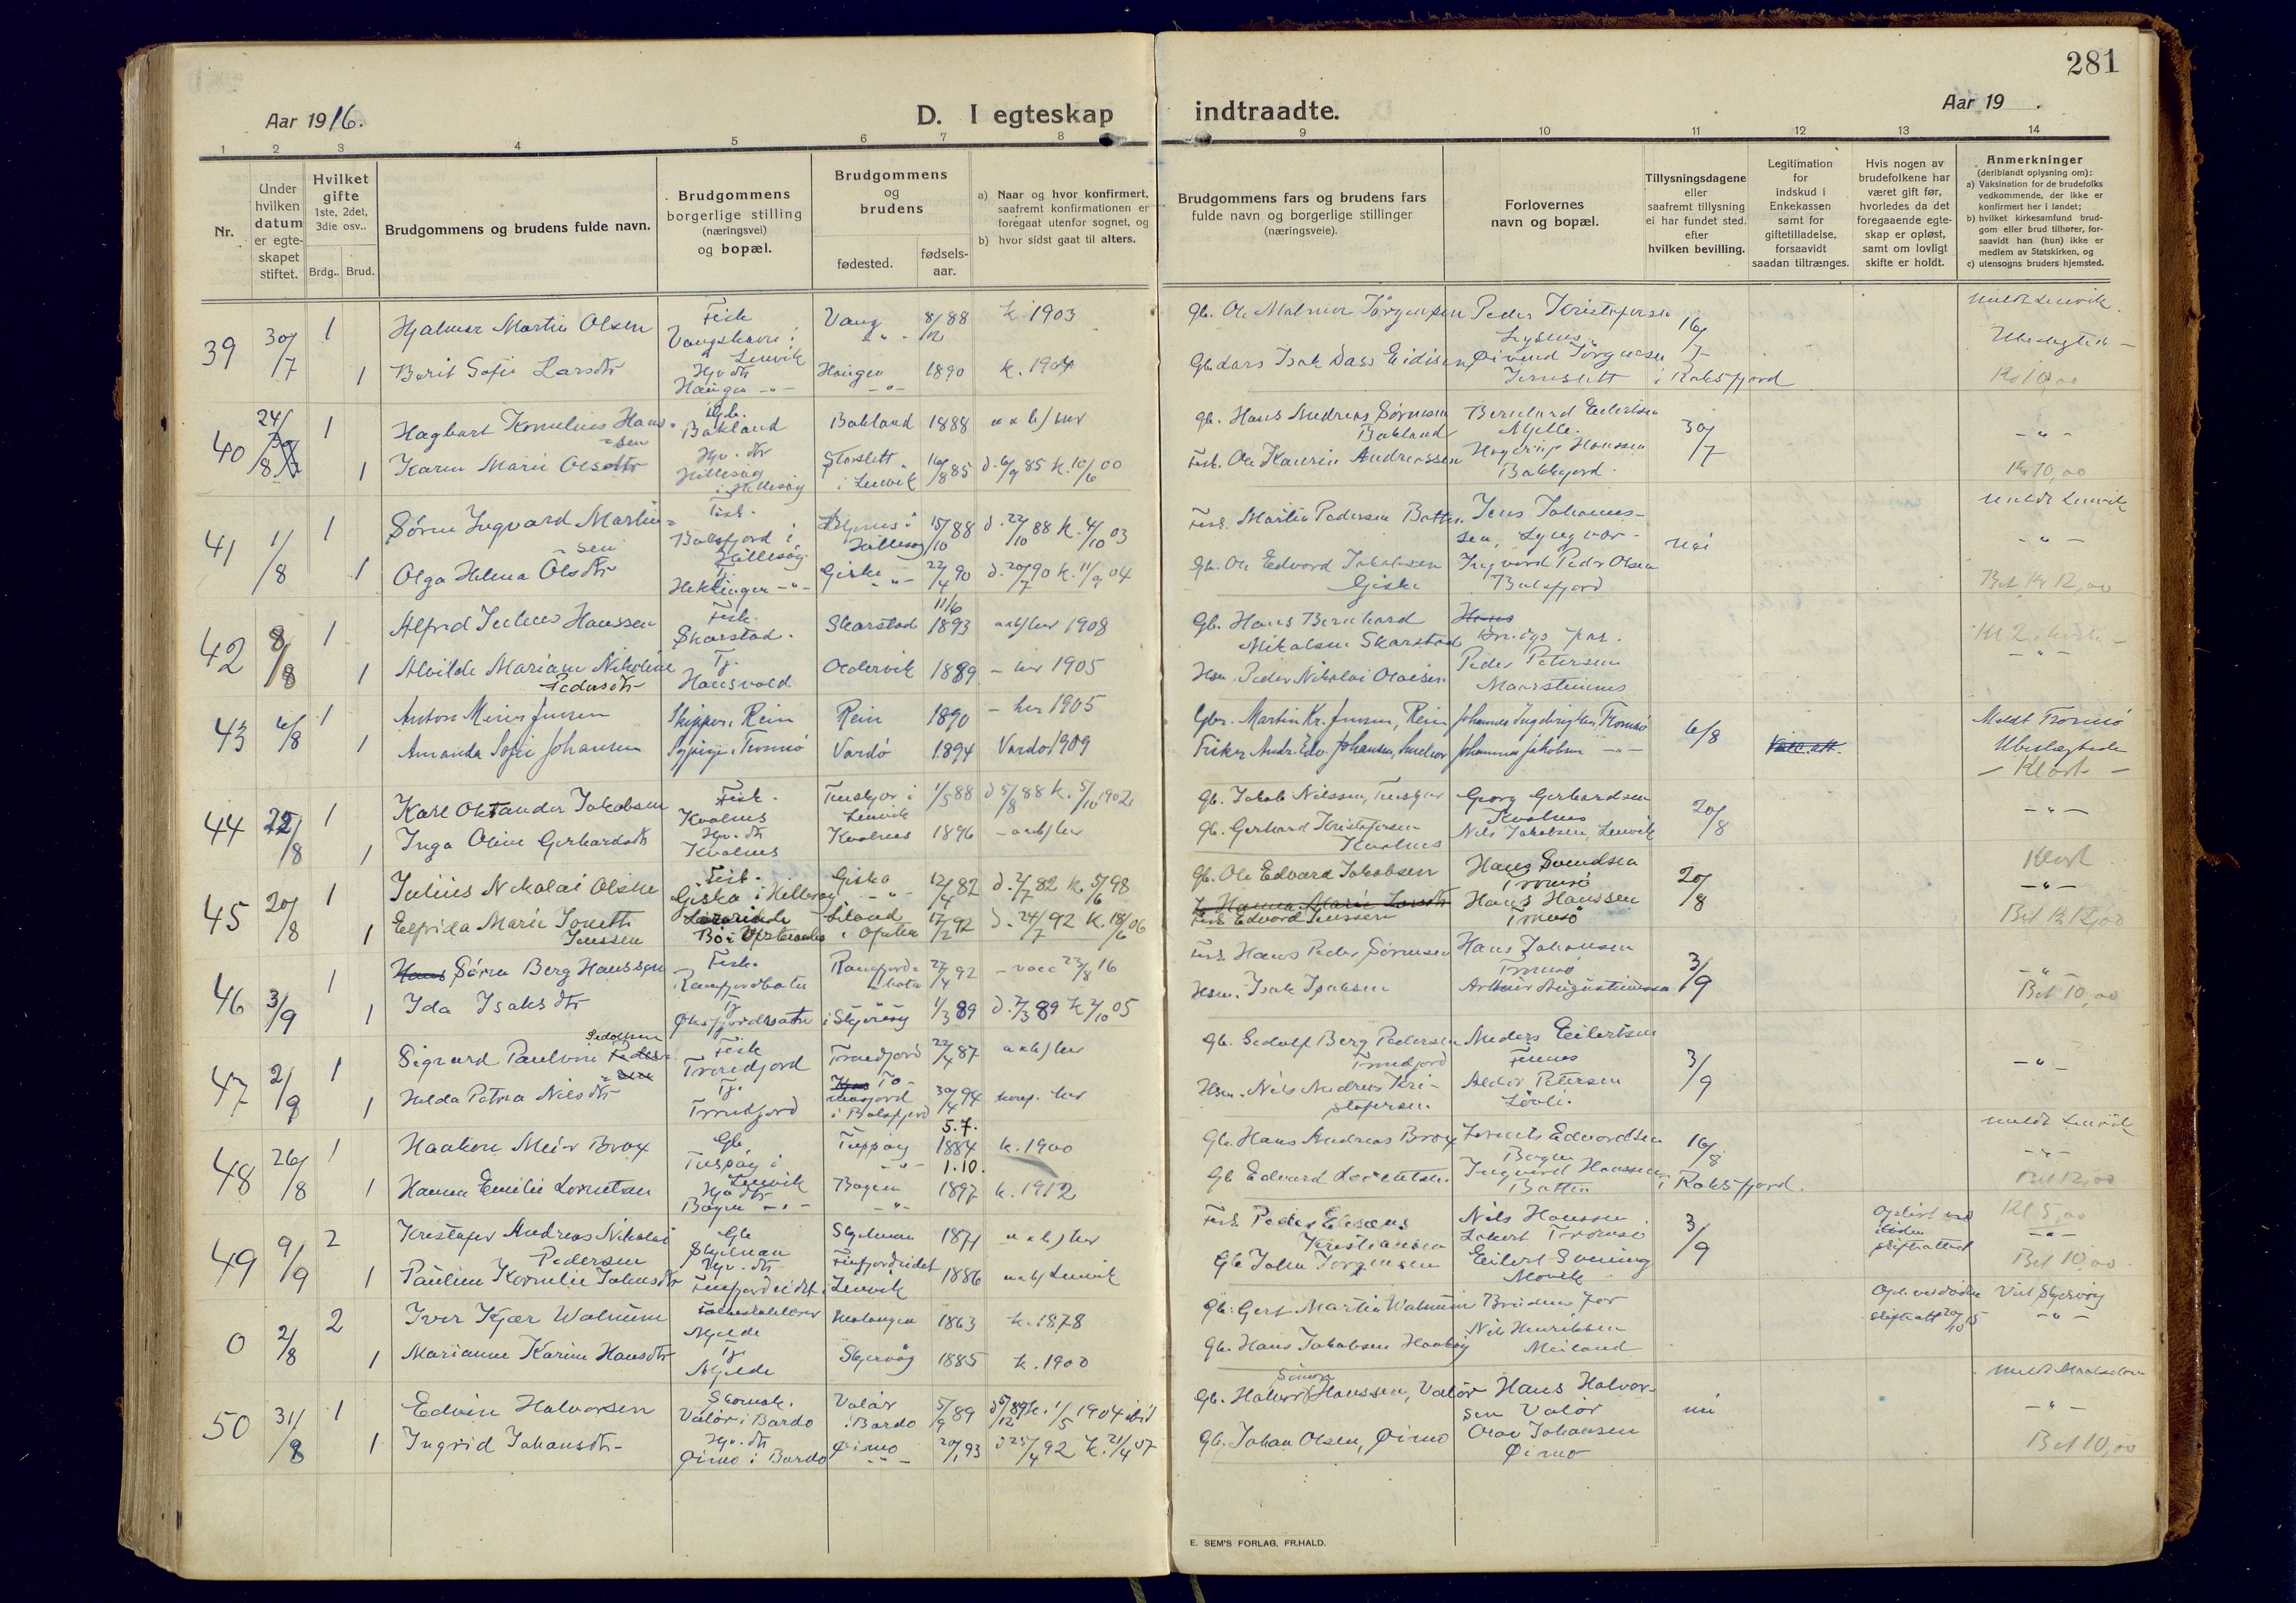 281
Aar 1916.
D. I egteskap indtraadte.
Aar 19 .
1 2 3 4 5 6 7 8 9 10 11 12 13 14
Nr.
Under hvilken datum er egteskapet stiftet.
Hvilket gifte 1ste, 2det, 3die osv..
Brdg.. Brud.
Brudgommens og brudens fulde navn.
Brudgommens borgerlige stilling (næringsvei) og bopæl.
Brudgommens og brudens
fødested.
fødselsaar.
a) Naar og hvor konfirmert, saafremt konfirmationen er foregaat utenfor sognet, og
b) hvor sidst gaat til alters.
Brudgommens fars og brudens fars fulde navn og borgerlige stillinger (næringsveie).
Forlovernes navn og bopæl.
Tillysningsdagene eller saafremt tillysning ei har fundet sted, efter hvilken bevilling.
Legitimation for indskud i Enkekassen samt for giftetilladelse, forsaavidt saadan tiltrænges.
Hvis nogen av brudefolkene har været gift før, hvorledes da det foregaaende egteskap er opløst, samt om lovligt skifte er holdt.
Anmerkninger (deriblandt oplysning om):
a) Vaksination for de brudefolks vedkommende, der ikke er konfirmert her i landet;
b) hvilket kirkesamfund brudgom eller brud tilhører, forsaavidt han (hun) ikke er medlem av Statskirken, og
c) utensogns bruders hjemsted.
39 30/7 1 Hjalmar Martin Olsen Fisk Vangshavn i Lenvik Vang 8/12 88 k. 1903 Gb. Ole Malmor Jörgensen Peder Kristofersen 16/7 meldt Lenvik
1 Berit Sofie Larsdtr Hgv dtr Haugen -"- Haugen -"- 1890 k. 1904 Gb. Lars Isak Dass Eidisen Øivind Jörgensen Jernslett i Roksfjord Ubeslegtede - Kr 10,00
40 24/8 1 Hagbart Kornelius Hansen Gb. Bakland Bakland 1888 a & b) her Gb. Hans Andreas Sørensen Bakland Bernhard Eilertsen Mjelle 30/7 -"-
1 Karen Marie Olsdtr Hgv. dtr Hillesøy i Hillesøy Storslett i Lenvik 16/8 85 d. 6/9 85 k. 10/6 00 Fisk. Ole Kaurin Andreassen Hagerup Hanssen Bakkejord. Kr 10,00
41 1/8 1 Søren Ingvard Martinsen Fisk. Balsfjord i Hillesøy i Hillesøy 15/10 88 d. 22/10 88 k. 4/10 03 Fisk. Martin Pedersen Batten. Jens Johannessen, Lyngvær - nei meldt Lenvik
1 Olga Helma Olsdtr Tj. Hekkingen -"- Giska -"- 22/4 90 d. 20/7 90 k. 11/9 04 Gb. Ole Edvard Jakobsen Giska Ingvard Peder Olsen Balsfjord -"- Bet Kr 12,00
42 8/8 1 Alfred Julius Hanssen Fisk. Skarstad. Skarstad 11/6 1893 a & b) her 1908 Gb. Hans Bernhard Mikalsen Skarstad Hans Brudgs far.
1 Alvilde Mariane Nikoline Pedersdtr Tj. Hansvold Oldervik 1889 - her 1905 Hsm. Peder Nikolai Olaisen Peder Petersen Maarstennes -"-
43 6/8 1 Anton Meier Jensen Skipper, Rein Rein 1890 - her 1905 Gbr. Martin Kr. Jensen, Rein Johannes Ingebrigtsen, Tromsø 6/8 Vacc. att. Meldt Tromsø
1 Amanda Sofie Johansen Sypige, Tromsø Vardø 1894 Vardø 1909 Fisker Andr. Edv. Johansen, Johannes Jakobsen -"- Ubeslegtede - Klart -
44 22/8 1 Karl Oktander Jakobsen Fisk. Kvalnes Tenskjer i Lenvik 1/5 88 d 5/8 88 k. 5/10 1902 Gb. Jakob Nilssen, Tenskjer Georg Gerhardsen Kvalnes 20/8 -"-
1 Inga Oline Gerhardsdtr Hgv. dtr Kvalnes Kvalnes 1896 - a & b) her Gb. Gerhard Kristofersen Kvalnes Nils Jakobsen, Lenvik
45 20/8 1 Julius Nikolai Olsen Fisk. Giska i Hillesøy Giska -"- 12/4 82 d. 2/7 82 k. 5/6 98 Gb. Ole Edvard Jakobsen Hans Svendsen Tromsø 20/8 Klart -"-
1 Elfrida Marie Jonette Jenssen Lærerinde Bø i Vesteraalen Liland i Ofoten 17/2 92 d. 24/7 92 k. 18/6 06 Hanna Marie Fisk Edvard Jenssen Hans Hanssen Tromsø Bet Kr 12,00
46 3/9 1 Hans Søren Berg Hanssen Fisk. Ramfjordbotn Ramfjordbotn 27/4 92 - vacc 23/8 16 Fisk. Hans Peder Sørensen Hans Johansen Tromsø 3/9 -"-
1 Ida Isaksdtr Tj. Øksfjordvatn i Skjervøy 1/3 89 d. 7/3 89 k 2/10 05 Hsm. Isak Isaksen Artur Augustinussen Bet 10,00
47 2/9 1 Sigvard Paulinus Peder-sen Sedolfsen Fisk Tromfjord Tromfjord 22/4 87 a & b) her Gb. Sedolf Berg Pedersen Tromfjord Anders Eilertsen Finnes 3/9 -"-
1 Helda Petra Nilsdtr Tj. Tromfjord i Balsfjord 30/4 94 konf. her Hsm. Nils Andreas Kristofersen. Aldor Petersen Løvli.
48 26/8 1 Haakon Meier Brox Gb Tuspøy i Lenvik Tuppøy 5.7. 1884 k. 1900 Gb. Hans Andreas Brox Lorents Edvardsen Bogen 16/8 meldt Lenvik -"-
1 Hanna Emilie Lorentsen Hgv dtr Bogen -"- Bogen -"- 1.10. 1897 k. 1912 Gb Edvard Lorentsen Ingvard Hanssen Botten i Roksfjord. Bet 12,00
49 9/9 2 Kristofer Andreas Nikolai Pedersen Gb Skjelnan Skjelnan 1871 a & b) her Fisk. Peder Elesæus Kristiansen Nils Hanssen Tromsø 3/9 Opløst ved døden skifteattest Kl 5,00 -"-
1 Pauline Kornelie Johnsdtr Hgv. dtr Finfjordeidet Finfjordeidet Lenvik 1886 a & b) Lenvik Gb John Jørgensen Eilert Evening Movik Bet 10,00
0 2/8 2 Iver Kjær Walnum Mjelde 1863 k. 1878 Gb. Gert Martin Walnum Brudens far Opl. ved døden skifteatt 20/10 15 Viel Skjervøy -"-
1 Marianne Karine Hansdtr Tj. Mjelde Skjervøy 1885 k. 1900 Gb. Hans Jakobsen Nils Henriksen Meiland
50 31/8 1 Edvin Halvorsen Skomak. Valør i Bardo Valør i Bardo 5/9 89 d 5/12 89 k. 1/5 1904 ibid Gb. Halvor Simon Hanssen, Valør Hans Halvorsen Valør nei meldt Maalselven -"-
1 Ingrid Johansdtr- Hgv. dtr Øimo i Bardo Øimo -"- 20/1 93 d 25/4 92 k. 21/4 07 Gb. Johan Olsen, Øimo Olav Johansen Øimo Bet 10,00
E. SEM'S FORLAG, FR.HALD.